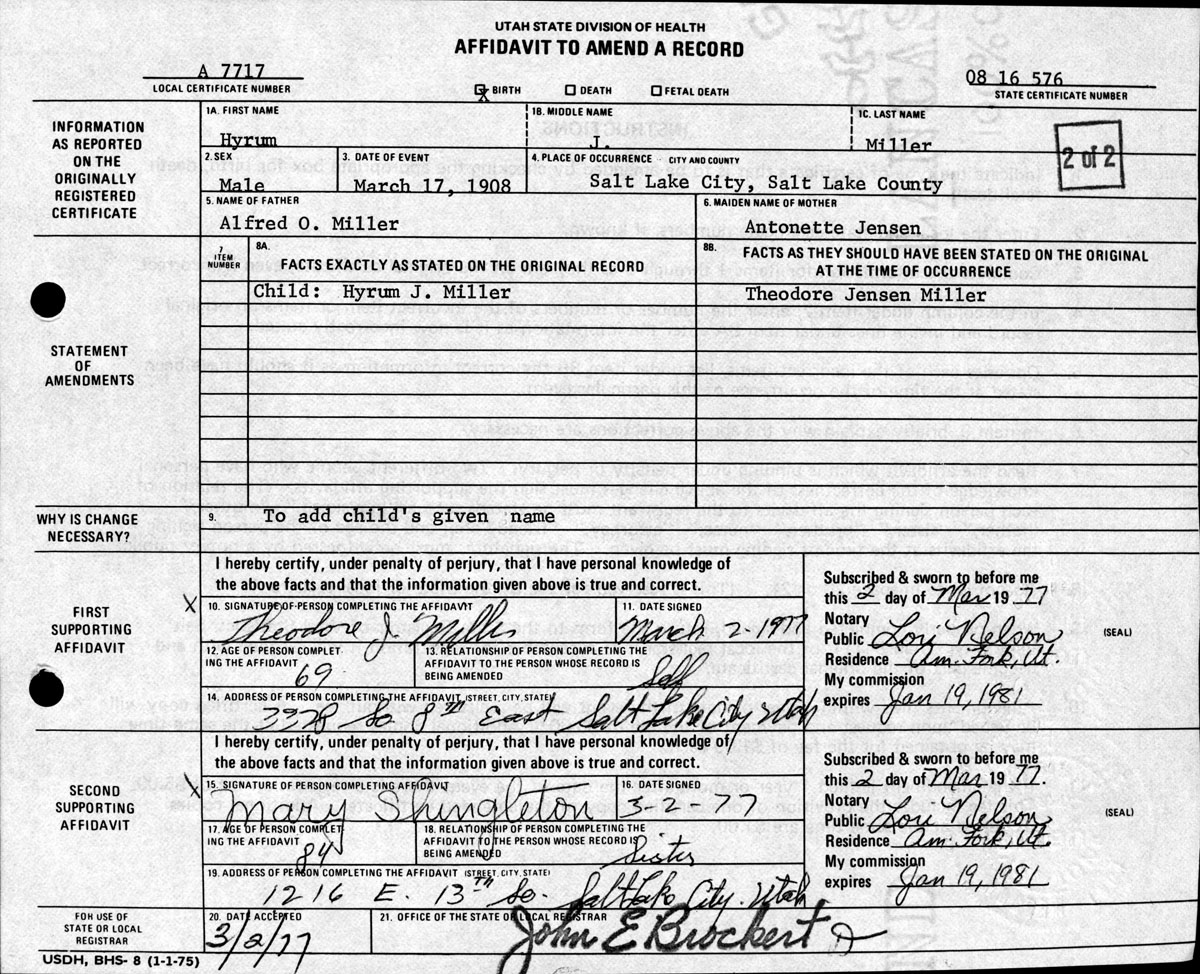 UTAH STATE DIVISION OF HEALTH
AFFIDAVIT TO AMEND A RECORD
A 7717
LOCAL CERTIFICATE NUMBER
X BIRTH DEATH FETAL DEATH
08 16 576
STATE CERTIFICATE NUMBER
INFORMATION AS REPORTED ON THE ORIGINALLY REGISTERED CERTIFICATE
1A. FIRST NAME 1B. MIDDLE NAME 1C. LAST NAME
Hyrum J. Miller
2 of 2
2. SEX 3. DATE OF EVENT 4. PLACE OF OCCURRENCE - CITY AND COUNTY
Male March 17, 1908 Salt Lake City, Salt Lake County
5. NAME OF FATHER 6. MAIDEN NAME OF MOTHER
Alfred O. Miller Antonette Jensen
STATEMENT OF AMENDMENTS
7 ITEM NUMBER
8A. FACTS EXACTLY AS STATED ON THE ORIGINAL RECORD
8B. FACTS AS THEY SHOULD HAVE BEEN STATED ON THE ORIGINAL
AT THE TIME OF OCCURRENCE
Child: Hyrum J. Miller Theodore Jensen Miller
WHY IS CHANGE NECESSARY?
9. To add child's given name
FIRST SUPPORTING AFFIDAVIT
I hereby certify, under penalty of perjury, that I have personal knowledge of
the above facts and that the information given above is true and correct.
X 10. SIGNATURE OF PERSON COMPLETING THE AFFIDAVIT 11. DATE SIGNED
Theodore J. Miller March 2-1977
12. AGE OF PERSON COMPLETING THE AFFIDAVIT
69
13. RELATIONSHIP OF PERSON COMPLETING THE
AFFIDAVIT TO THE PERSON WHOSE RECORD IS
BEING AMENDED
Self
14. ADDRESS OF PERSON COMPLETING THE AFFIDAVIT (STREET, CITY, STATE)
3378 So 8th East Salt Lake City Utah
Subscribed & sworn to before me
this 2 day of Mar 19 77
Notary
Public Lori Nelson
(SEAL)
Residence Am. Fork, Ut.
My commission
expires Jan 19, 1981
SECOND SUPPORTING AFFIDAVIT
I hereby certify, under penalty of perjury, that I have personal knowledge of
the above facts and that the information given above is true and correct.
X 15. SIGNATURE OF PERSON COMPLETING AFFIDAVIT 16. DATE SIGNED
Mary Shingleton 3-2-77
17. AGE OF PERSON COMPLETING THE AFFIDAVIT
84
18. RELATIONSHIP OF PERSON COMPLETING THE
AFFIDAVIT TO THE PERSON WHOSE RECORD IS
BEING AMENDED
Sister
19. ADDRESS OF PERSON COMPLETING THE AFFIDAVIT (STREET, CITY, STATE)
1216 E. 13th So. Salt Lake City. Utah
Subscribed & sworn to before me
this 2 day of Mar 19 77.
Notary
Public Lori Nelson
(SEAL)
Residence Am. Fork, Ut.
My commission
expires Jan 19, 1981
FOR USE OF STATE OR LOCAL REGISTRAR
20. DATE ACCEPTED 21. OFFICE OF THE STATE OR LOCAL REGISTRAR
3/2/77 John E Brockert
USDH, BHS- 8 (1-1-75)